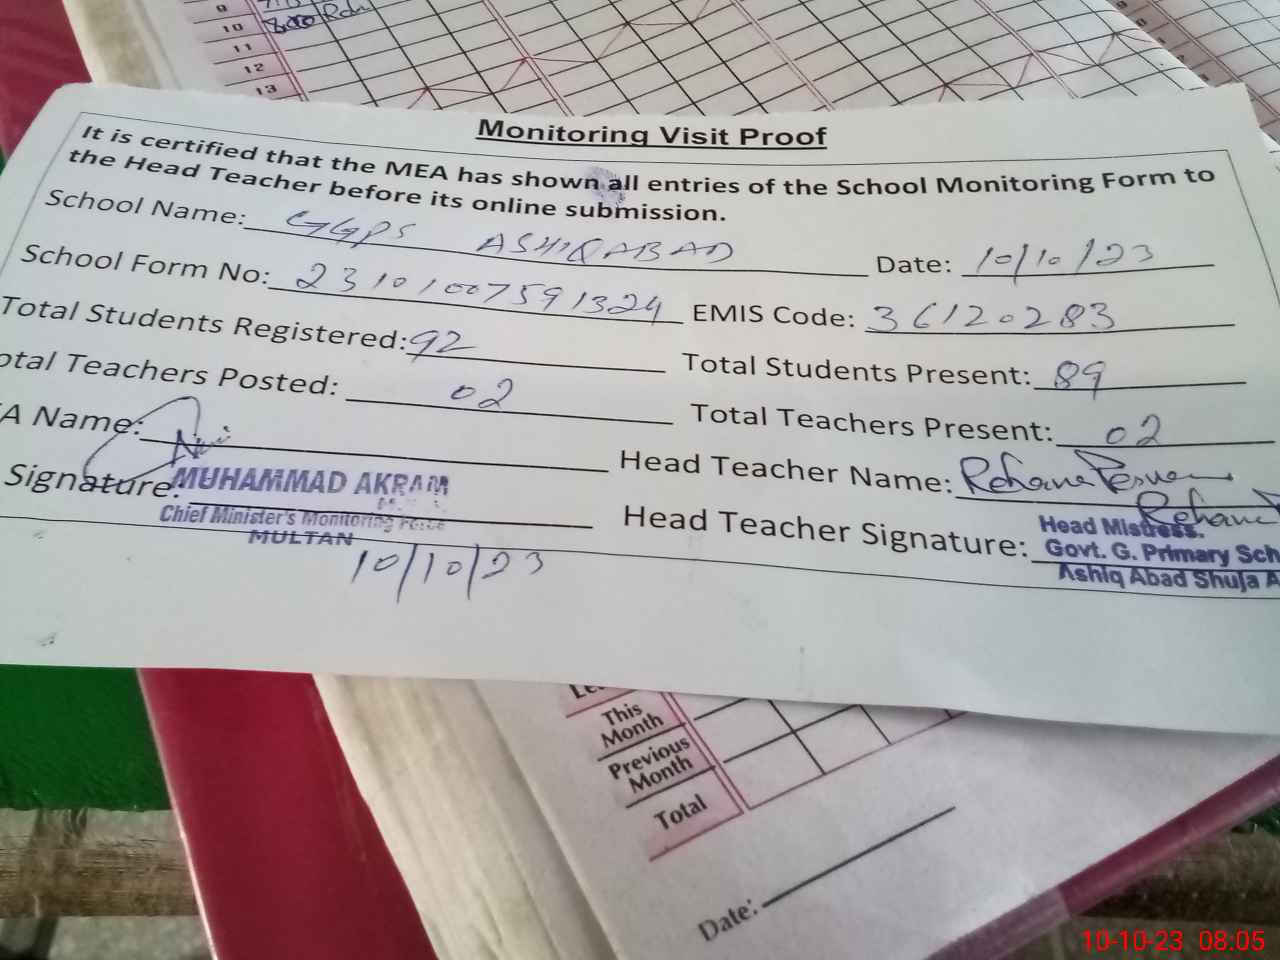 9
10
11
12
13
Monitoring Visit Proof
It is certified that the MEA has shown all entries of the School Monitoring Form to
the Head Teacher before its online submission.
School Name: GGPS ASHIQABAD Date: 10/10/23
School Form No: 23101007591324 EMIS Code: 36120283
Total Students Registered: 92 Total Students Present: 89
otal Teachers Posted: 02 Total Teachers Present: 02
A Name: Head Teacher Name: Rehana
Signature: Head Teacher Signature: Rehana
MUHAMMAD AKRAM
Chief Minister's Monitoring Force
MULTAN
10/10/23
Head Mistress.
Govt. G. Primary Sch
Ashiq Abad Shuja A
This
Month
Previous
Month
Total
Date:
10-10-23 08:05